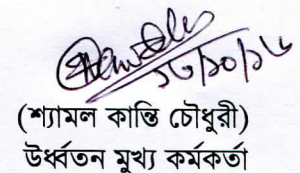 ১৬/১০/১৬
(শ্যামল কান্তি চৌধুরী)
উর্ধ্বতন মুখ্য কর্মকর্তা